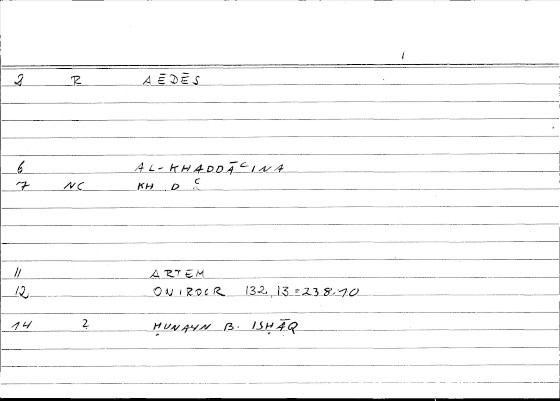 1
2 R AĒDĒS
6 AL-KHADDĀʿINA
7 NC KH D ʿ
11 ARTEM
12 ONIROCR 132,13=238.10
14 2 ḤUNAYN B. ISḤĀQ